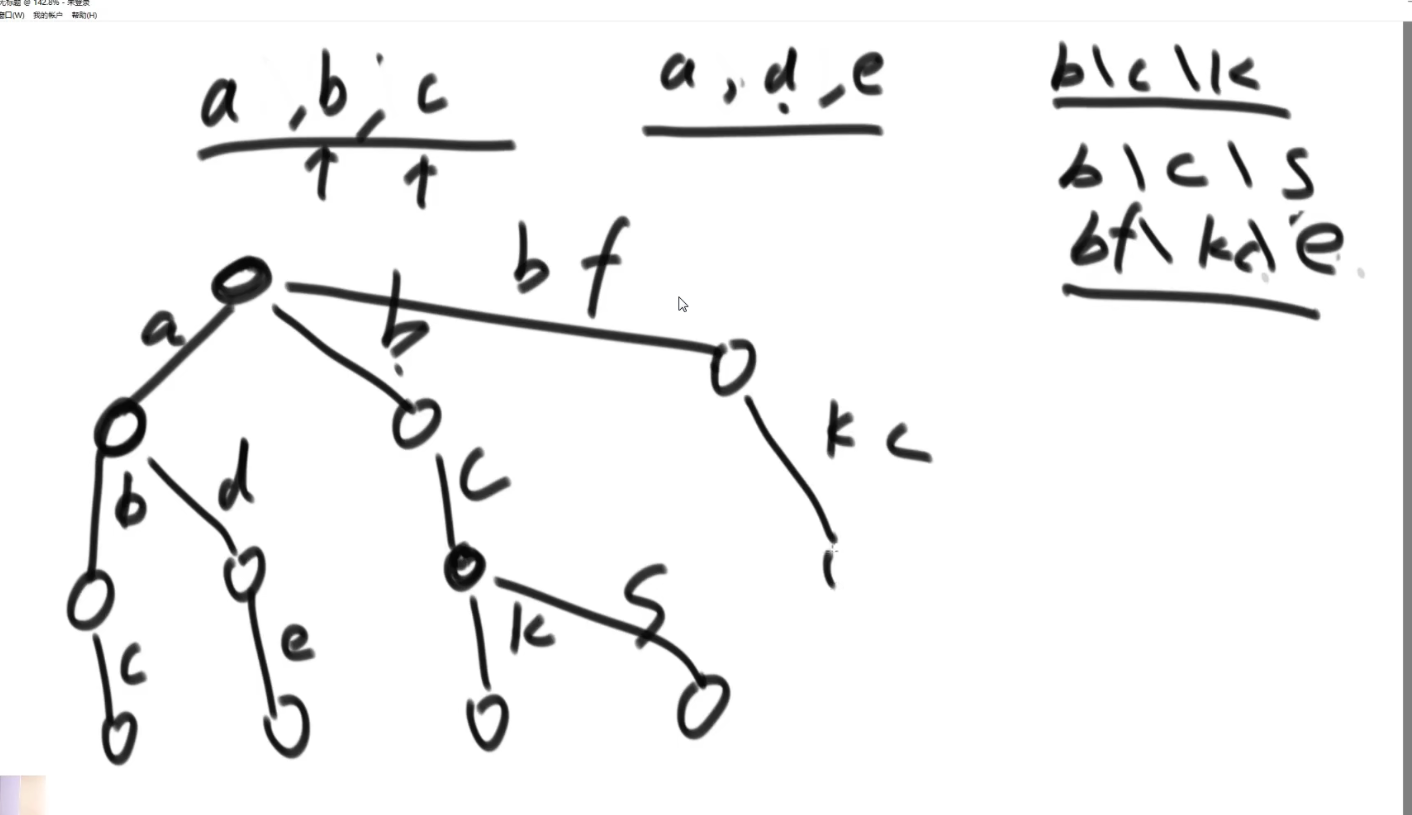 无标题 @ 142.8% - 未登录
窗口(W) 我的帐户 帮助(H)
a , b , c
a , d , e
b\c\k
b\c\s
bf\kc\e
b f
a
b
k c
b
d
c
c
e
k
s